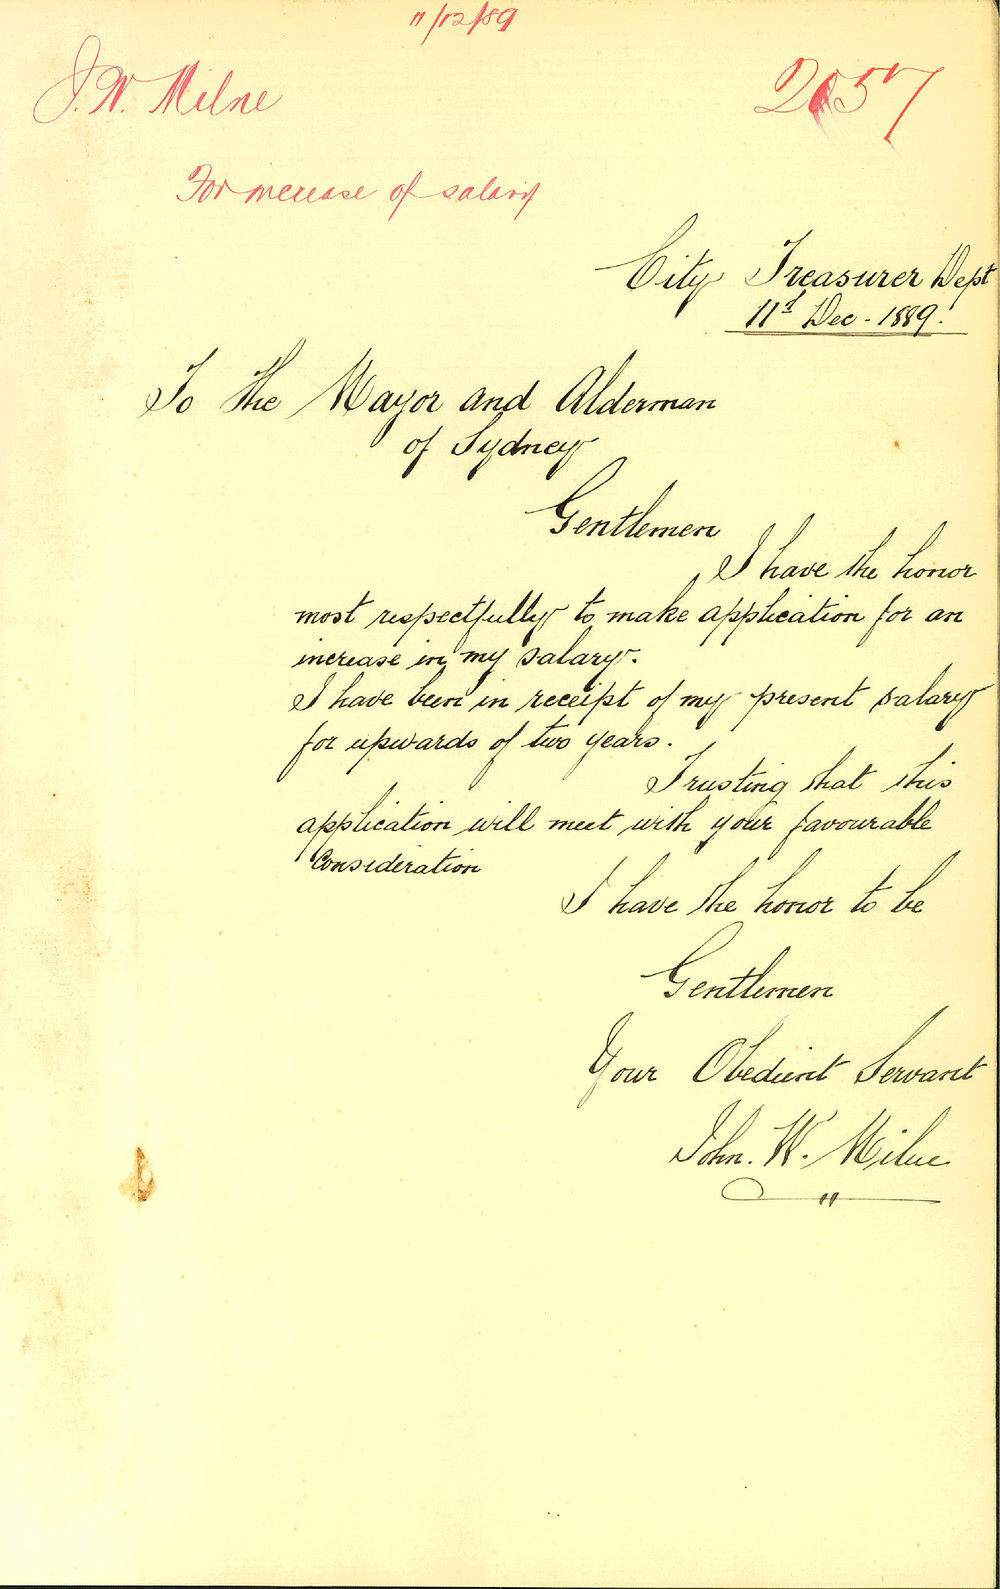 11/12/89
J. W. Milne
2157
For increase of salary
City Treasurer Dept
11th Dec - 1889.
To the Mayor and Alderman
of Sydney
Gentlemen
I have the honor
most respectfully to make application for an
increase in my salary.
I have been in receipt of my present salary
for upwards of two years.
Trusting that this
application will meet with your favourable
Consideration
I have the honor to be
Gentlemen
Your Obedient Servant
John. W. Milne